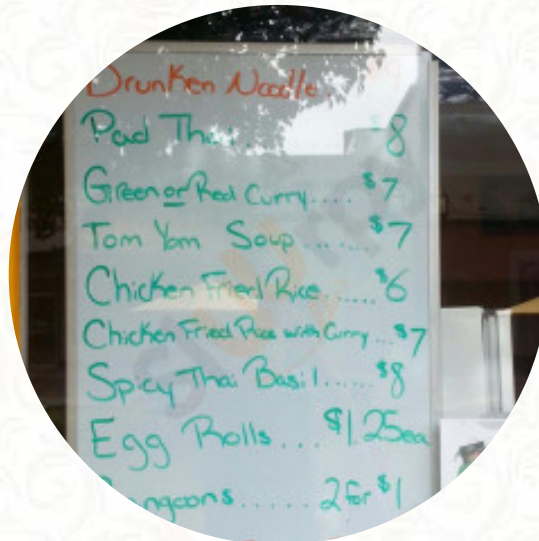 Drunken Noodle
Pad Thai.. $8
Green or Red Curry.... $7
Tom Yam Soup ....... $7
Chicken Fried Rice...... $6
Chicken Fried Rice with Curry... $7
Spicy Thai Basil...... $8
Egg Rolls... $1.25ea
Rangoons...... 2 for $1